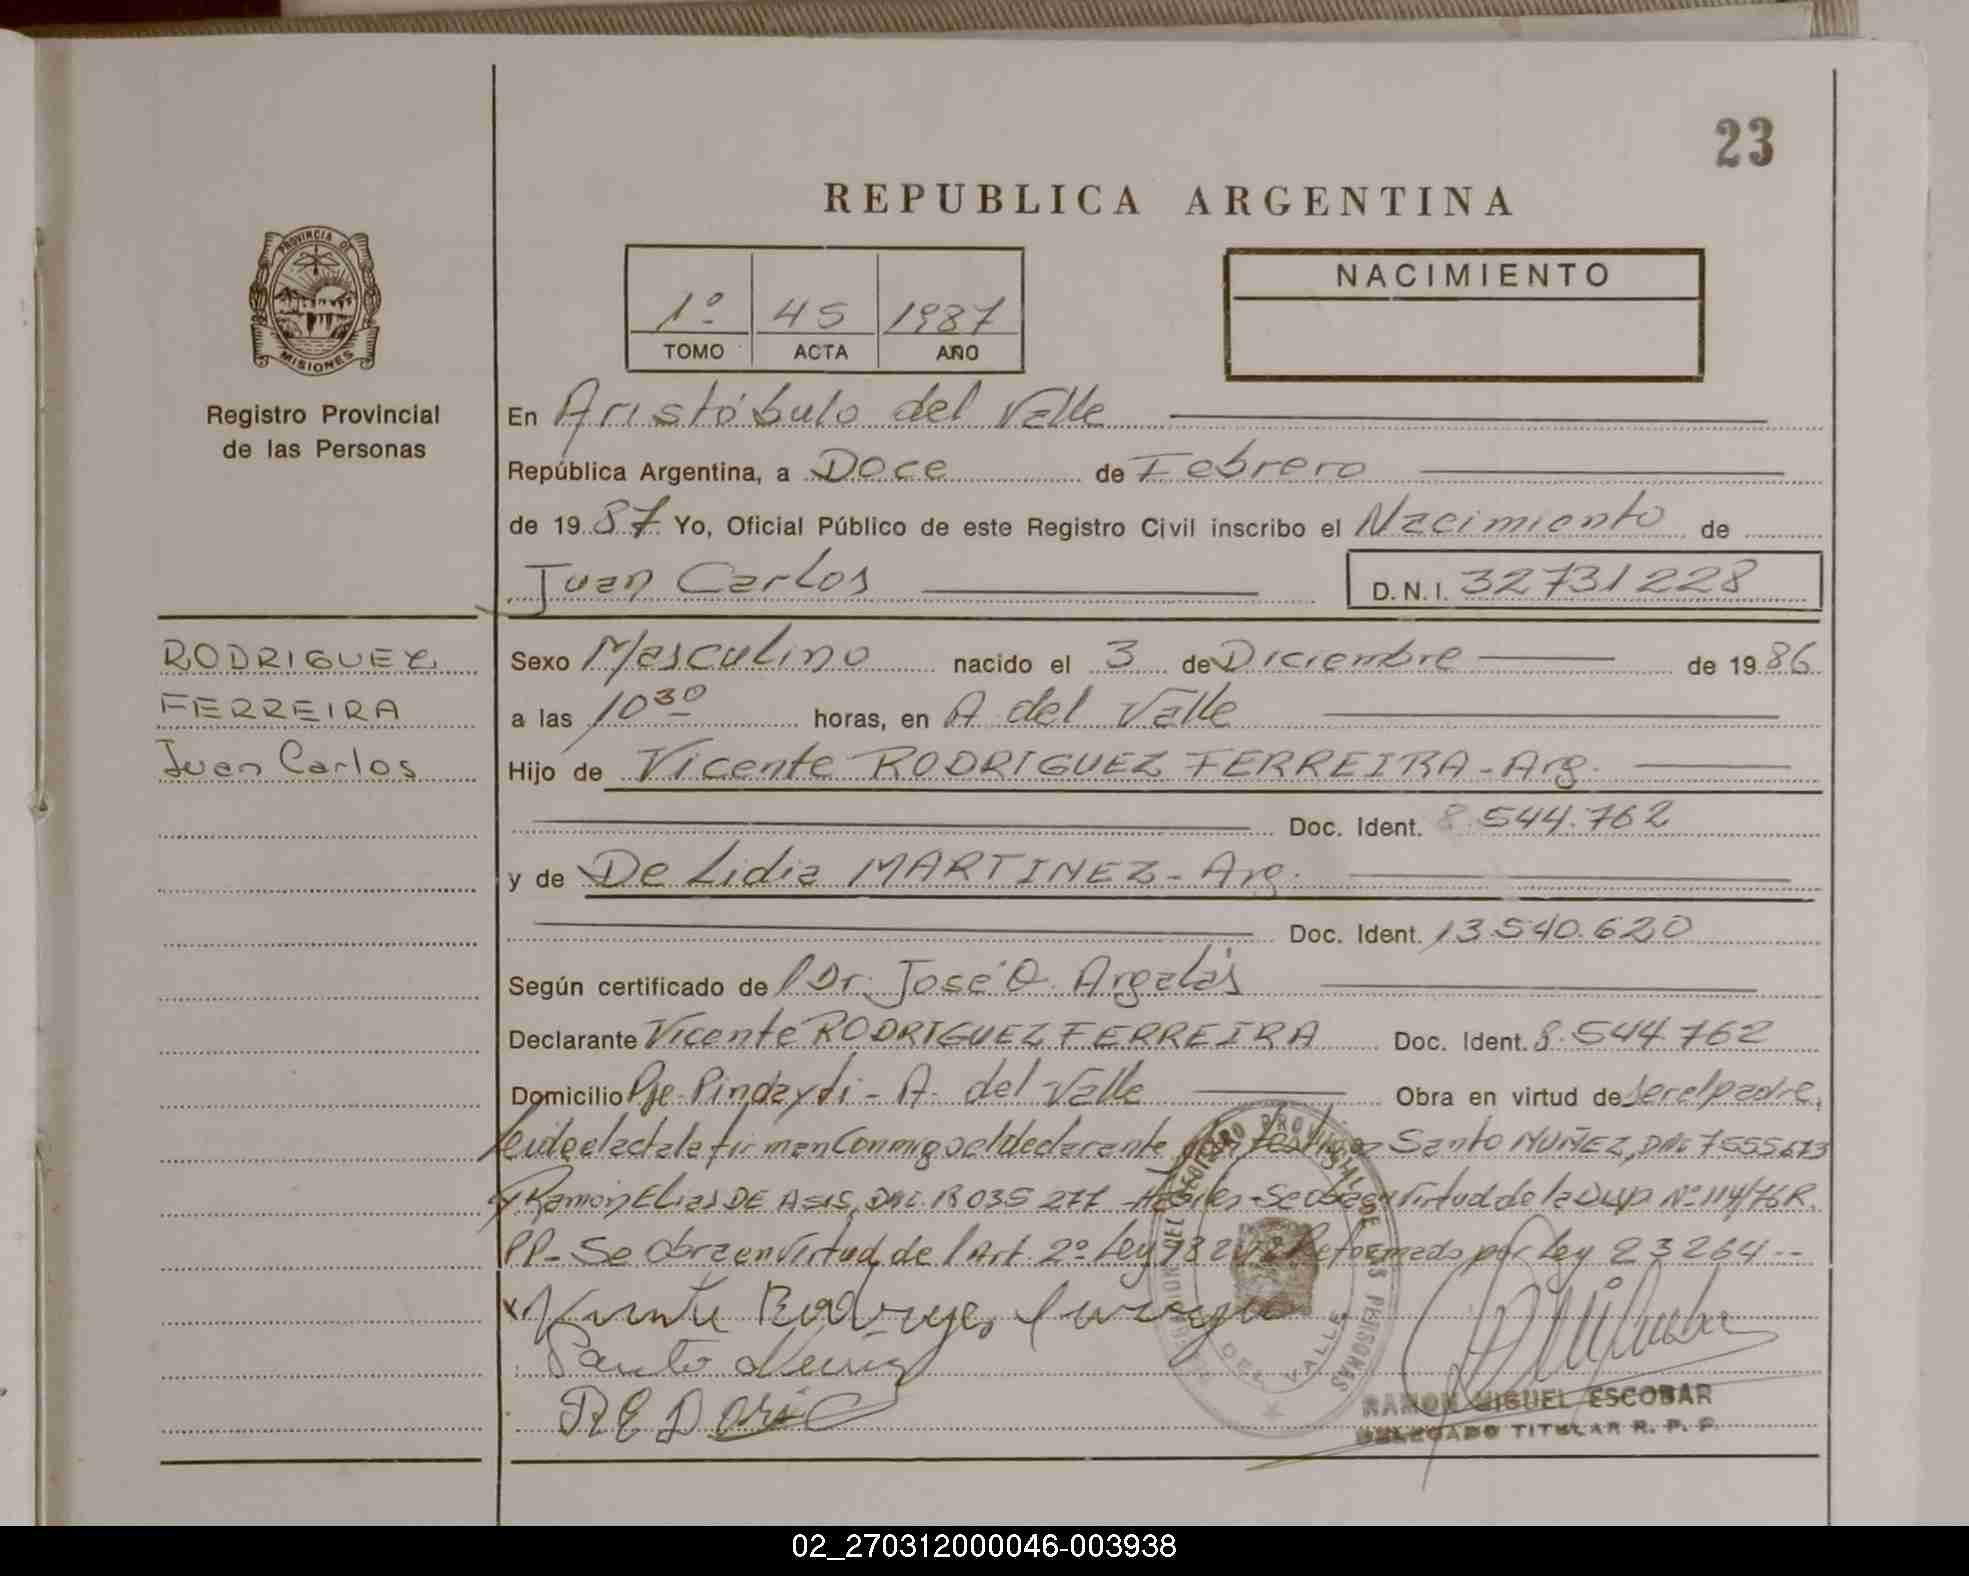 23
REPUBLICA ARGENTINA
PROVINCIA DE
MISIONES
Registro Provincial
de las Personas
1º 45 1987
TOMO ACTA AÑO
NACIMIENTO
En Aristóbulo del Valle
República Argentina, a Doce de Febrero
de 1987 Yo, Oficial Público de este Registro Civil inscribo el Nacimiento de
Juan Carlos D.N.I. 32731228
RODRIGUEZ
FERREIRA
Juan Carlos
Sexo Masculino nacido el 3 de Diciembre de 1986
a las 10 30 horas, en A del Valle
Hijo de Vicente RODRIGUEZ FERREIRA - Arg.
Doc. Ident. 8.544.762
y de De Lidia MARTINEZ - Arg.
Doc. Ident. 13.540.620
Según certificado del Dr. José O. Argalás
Declarante Vicente RODRIGUEZ FERREIRA Doc. Ident. 8.544.762
Domicilio Pje. Pindayti - A. del Valle Obra en virtud de ser el padre,
leida el acta la firman conmigo el declarante y los testigos Santo NUÑEZ, DNI. 7555673
y Ramón Elias DE ASIS, DNI. 18 035 277 - Hábiles - Se obra en virtud de la Disp Nº 114/76 R.
PP - Se obra en virtud del Art. 2º Ley 18248 Reformado por Ley 23264 --
Vicente Rodriguez Ferreira
Santo Nuñez
R E D Asis
DEL REGISTRO PROVINCIAL DE LAS PERSONAS
DEL VALLE
RAMON MIGUEL ESCOBAR
DELEGADO TITULAR R. P. P.
02_270312000046-003938